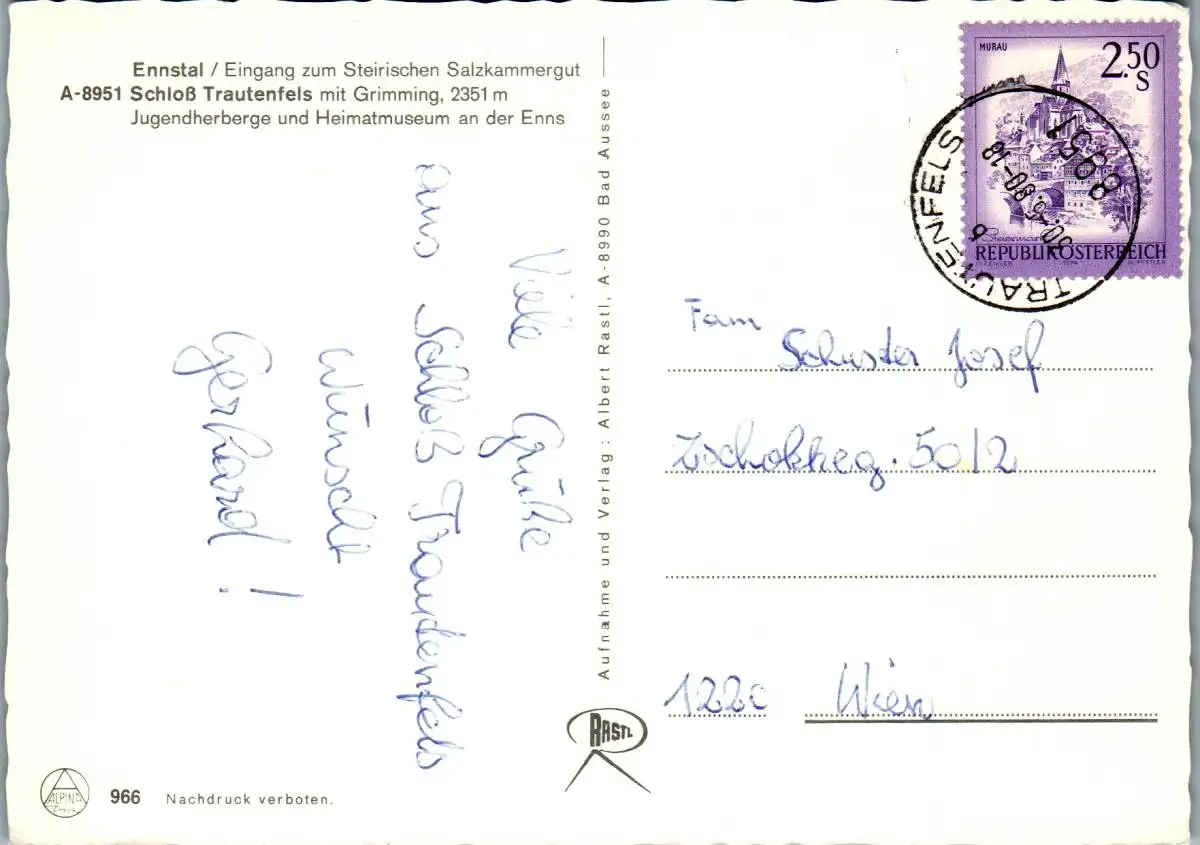 Ennstal / Eingang zum Steirischen Salzkammergut
A-8951 Schloß Trautenfels mit Grimming, 2351 m
Jugendherberge und Heimatmuseum an der Enns
Viele Grüße
aus Schloß Trautenfels
wünscht
Gerhard !
Aufnahme und Verlag : Albert Rastl, A-8990 Bad Aussee
RASTL
ALPINE
966 Nachdruck verboten.
MURAU
2.50
S
Steiermark
REPUBLIK ÖSTERREICH
8951
30.-5.80-18
6
TRAUTENFELS
Fam
Schuster Josef
Zschokkeg. 50/2
1220 Wien